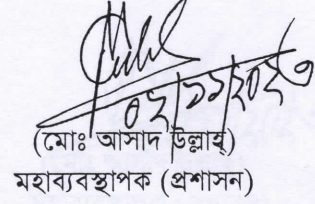 ০২/১১/২০২৩
(মোঃ আসাদ উল্লাহ্)
মহাব্যবস্থাপক (প্রশাসন)